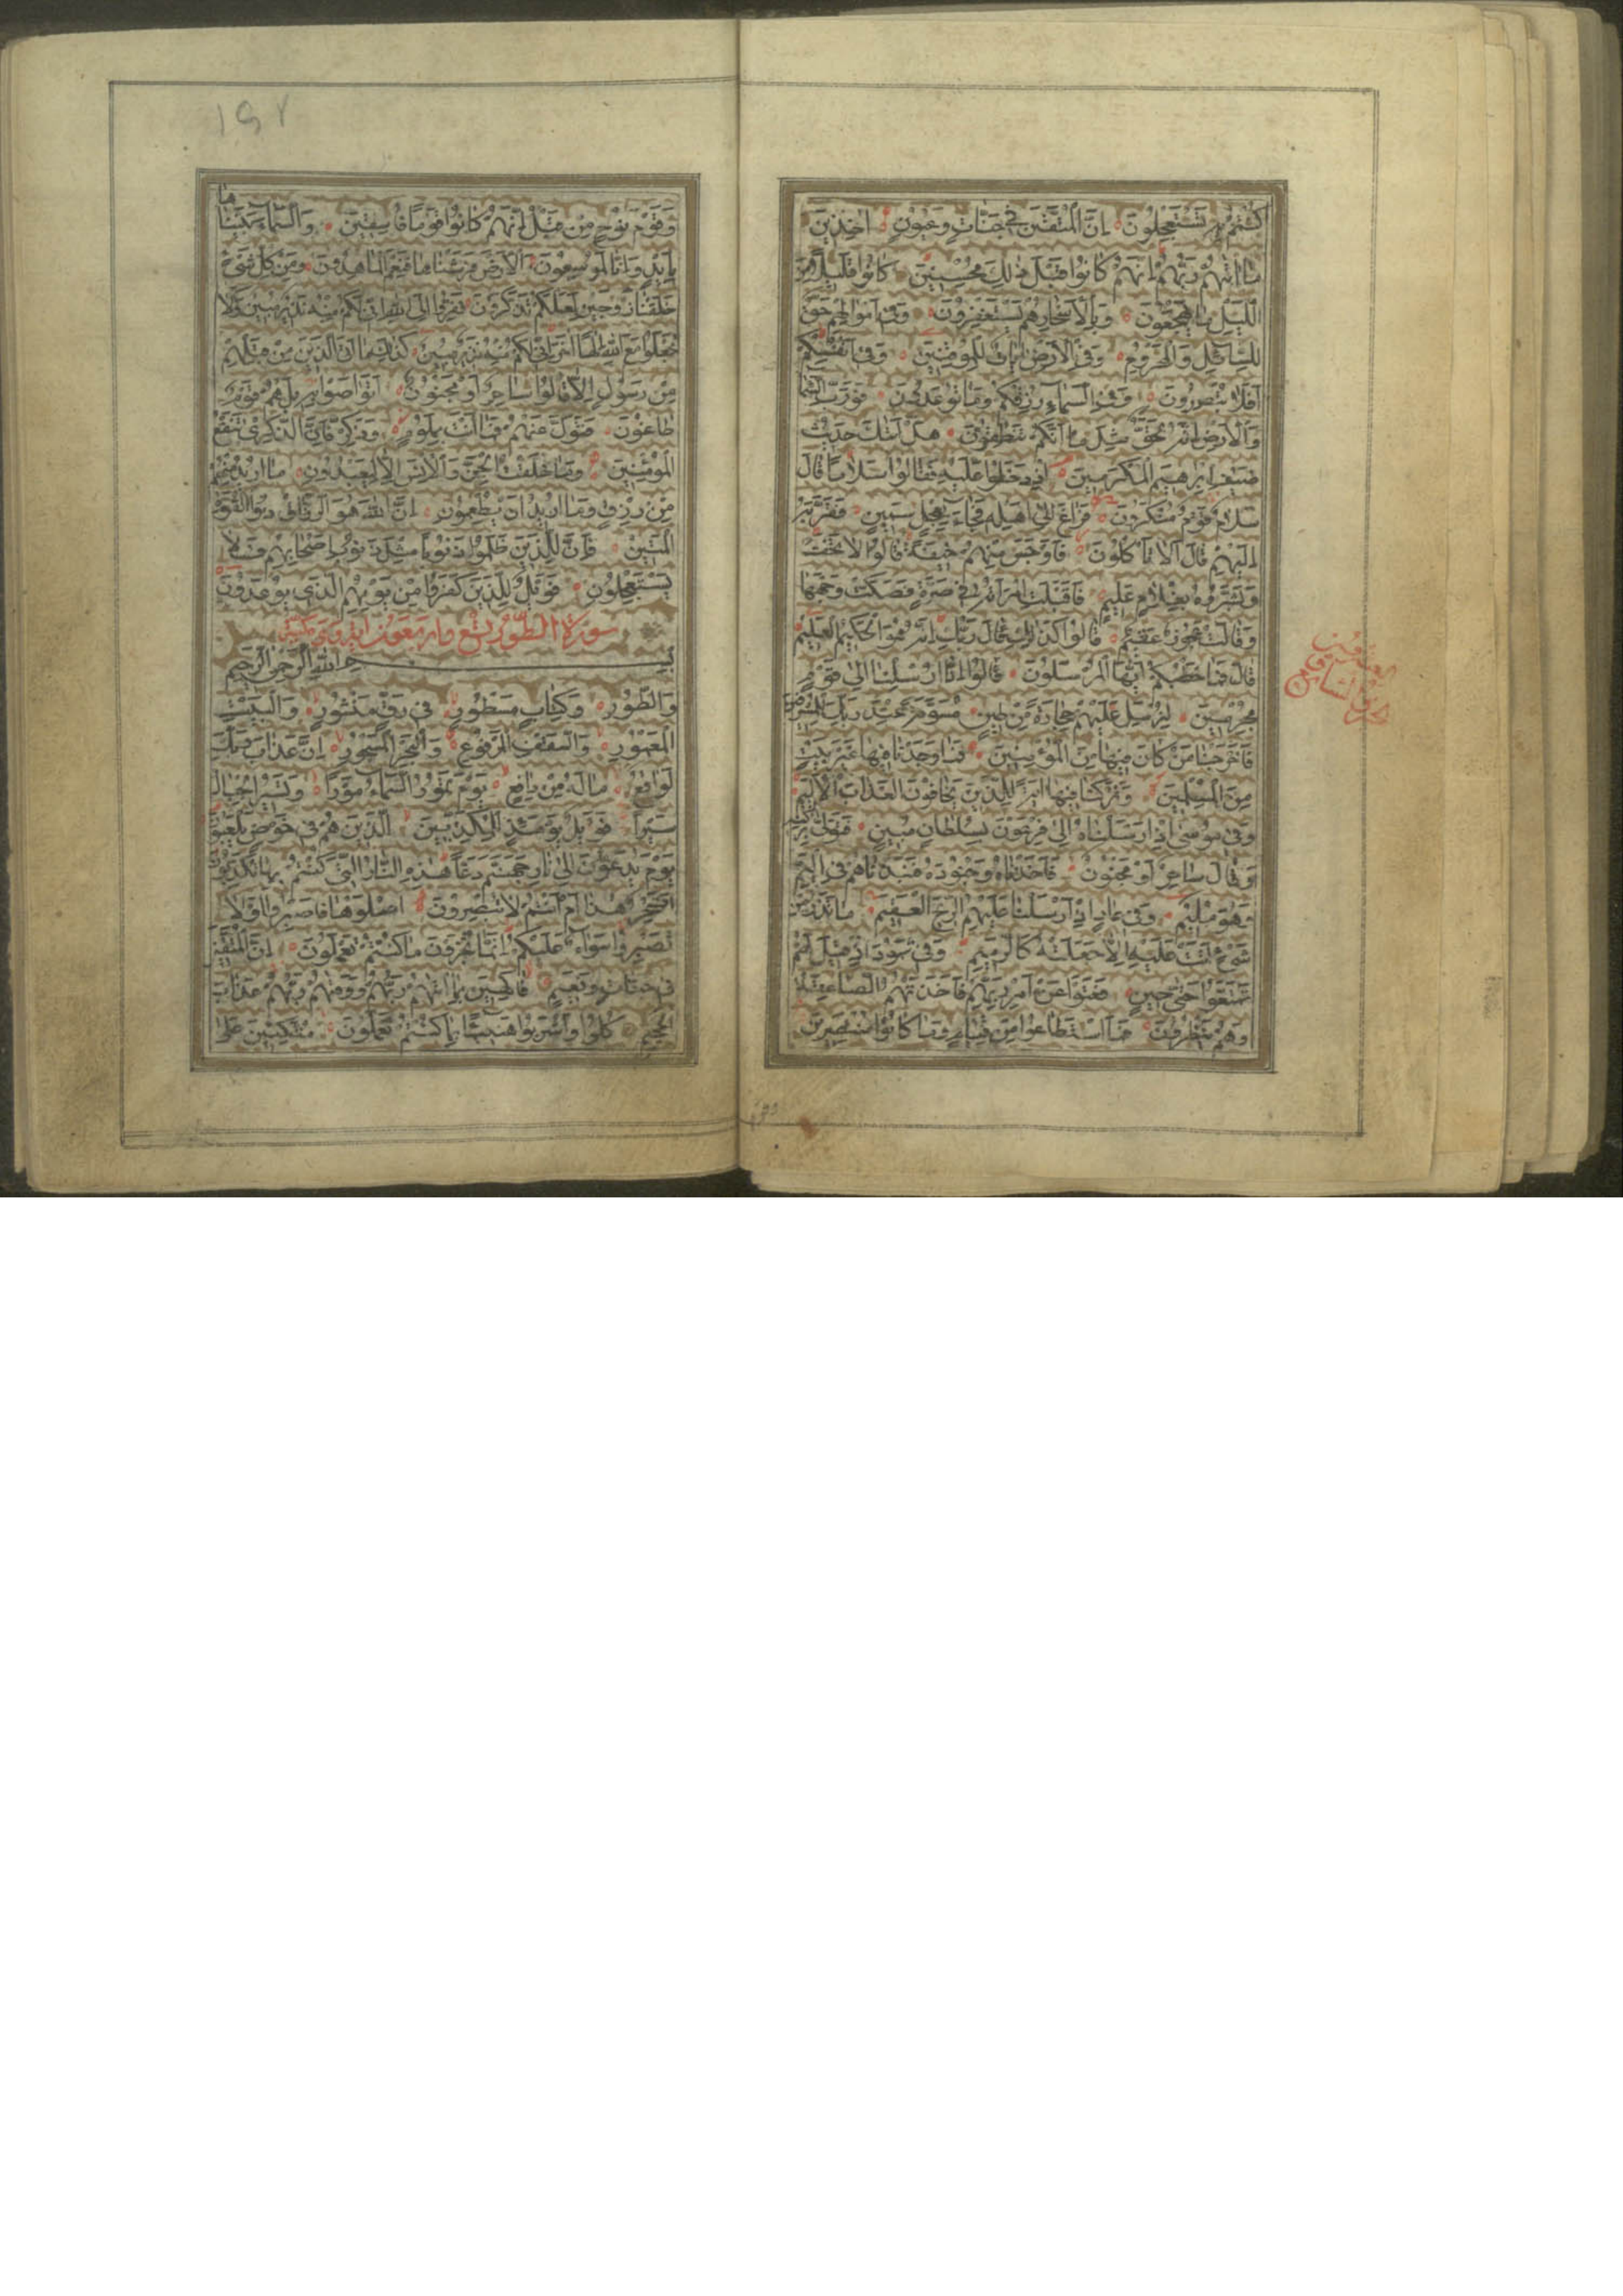 كُنْتُمْ بِهِ تَسْتَعْجِلُونَ اِنَّ الْمُتَّقِينَ فِي جَنَّاتٍ وَعُيُونٍ اٰخِذِينَ
مَا اٰتٰهُمْ رَبُّهُمْ اِنَّهُمْ كَانُوا قَبْلَ ذٰلِكَ مُحْسِنِينَ كَانُوا قَلِيلًا مِنَ
اللَّيْلِ مَا يَهْجَعُونَ وَبِالْاَسْحَارِ هُمْ يَسْتَغْفِرُونَ وَفِي اَمْوَالِهِمْ حَقٌّ
لِلسَّائِلِ وَالْمَحْرُومِ وَفِي الْاَرْضِ اٰيَاتٌ لِلْمُوقِنِينَ وَفِي اَنْفُسِكُمْ
اَفَلَا تُبْصِرُونَ وَفِي السَّمَاءِ رِزْقُكُمْ وَمَا تُوعَدُونَ فَوَرَبِّ السَّمَاءِ
وَالْاَرْضِ اِنَّهُ لَحَقٌّ مِثْلَ مَا اَنَّكُمْ تَنْطِقُونَ هَلْ اَتٰيكَ حَدِيثُ
ضَيْفِ اِبْرٰهِيمَ الْمُكْرَمِينَ اِذْ دَخَلُوا عَلَيْهِ فَقَالُوا سَلَامًا قَالَ
سَلَامٌ قَوْمٌ مُنْكَرُونَ فَرَاغَ اِلٰى اَهْلِهِ فَجَاءَ بِعِجْلٍ سَمِينٍ فَقَرَّبَهُ
اِلَيْهِمْ قَالَ اَلَا تَأْكُلُونَ فَاَوْجَسَ مِنْهُمْ خِيفَةً قَالُوا لَا تَخَفْ
وَبَشَّرُوهُ بِغُلَامٍ عَلِيمٍ فَاَقْبَلَتِ امْرَاَتُهُ فِي صَرَّةٍ فَصَكَّتْ وَجْهَهَا
وَقَالَتْ عَجُوزٌ عَقِيمٌ قَالُوا كَذٰلِكِ قَالَ رَبُّكِ اِنَّهُ هُوَ الْحَكِيمُ الْعَلِيمُ
قَالَ فَمَا خَطْبُكُمْ اَيُّهَا الْمُرْسَلُونَ قَالُوا اِنَّا اُرْسِلْنَا اِلٰى قَوْمٍ
مُجْرِمِينَ لِنُرْسِلَ عَلَيْهِمْ حِجَارَةً مِنْ طِينٍ مُسَوَّمَةً عِنْدَ رَبِّكَ لِلْمُسْرِفِينَ
فَاَخْرَجْنَا مَنْ كَانَ فِيهَا مِنَ الْمُؤْمِنِينَ فَمَا وَجَدْنَا فِيهَا غَيْرَ بَيْتٍ
مِنَ الْمُسْلِمِينَ وَتَرَكْنَا فِيهَا اٰيَةً لِلَّذِينَ يَخَافُونَ الْعَذَابَ الْاَلِيمَ
وَفِي مُوسٰى اِذْ اَرْسَلْنَاهُ اِلٰى فِرْعَوْنَ بِسُلْطَانٍ مُبِينٍ فَتَوَلّٰى بِرُكْنِهِ
وَقَالَ سَاحِرٌ اَوْ مَجْنُونٌ فَاَخَذْنَاهُ وَجُنُودَهُ فَنَبَذْنَاهُمْ فِي الْيَمِّ
وَهُوَ مُلِيمٌ وَفِي عَادٍ اِذْ اَرْسَلْنَا عَلَيْهِمُ الرِّيحَ الْعَقِيمَ مَا تَذَرُ مِنْ
شَيْءٍ اَتَتْ عَلَيْهِ اِلَّا جَعَلَتْهُ كَالرَّمِيمِ وَفِي ثَمُودَ اِذْ قِيلَ لَهُمْ
تَمَتَّعُوا حَتّٰى حِينٍ فَعَتَوْا عَنْ اَمْرِ رَبِّهِمْ فَاَخَذَتْهُمُ الصَّاعِقَةُ
وَهُمْ يَنْظُرُونَ فَمَا اسْتَطَاعُوا مِنْ قِيَامٍ وَمَا كَانُوا مُنْتَصِرِينَ
١٩٢
وَقَوْمَ نُوحٍ مِنْ قَبْلُ اِنَّهُمْ كَانُوا قَوْمًا فَاسِقِينَ وَالسَّمَاءَ بَنَيْنَاهَا
بِاَيْدٍ وَاِنَّا لَمُوسِعُونَ وَالْاَرْضَ فَرَشْنَاهَا فَنِعْمَ الْمَاهِدُونَ وَمِنْ كُلِّ شَيْءٍ
خَلَقْنَا زَوْجَيْنِ لَعَلَّكُمْ تَذَكَّرُونَ فَفِرُّوا اِلَى اللّٰهِ اِنِّي لَكُمْ مِنْهُ نَذِيرٌ مُبِينٌ وَلَا
تَجْعَلُوا مَعَ اللّٰهِ اِلٰهًا اٰخَرَ اِنِّي لَكُمْ مِنْهُ نَذِيرٌ مُبِينٌ كَذٰلِكَ مَا اَتَى الَّذِينَ مِنْ قَبْلِهِمْ
مِنْ رَسُولٍ اِلَّا قَالُوا سَاحِرٌ اَوْ مَجْنُونٌ اَتَوَاصَوْا بِهِ بَلْ هُمْ قَوْمٌ
طَاغُونَ فَتَوَلَّ عَنْهُمْ فَمَا اَنْتَ بِمَلُومٍ وَذَكِّرْ فَاِنَّ الذِّكْرٰى تَنْفَعُ
الْمُؤْمِنِينَ وَمَا خَلَقْتُ الْجِنَّ وَالْاِنْسَ اِلَّا لِيَعْبُدُونِ مَا اُرِيدُ مِنْهُمْ
مِنْ رِزْقٍ وَمَا اُرِيدُ اَنْ يُطْعِمُونِ اِنَّ اللّٰهَ هُوَ الرَّزَّاقُ ذُو الْقُوَّةِ
الْمَتِينُ فَاِنَّ لِلَّذِينَ ظَلَمُوا ذَنُوبًا مِثْلَ ذَنُوبِ اَصْحَابِهِمْ فَلَا
يَسْتَعْجِلُونِ فَوَيْلٌ لِلَّذِينَ كَفَرُوا مِنْ يَوْمِهِمُ الَّذِي يُوعَدُونَ
سورة الطور تسع واربعون اية وهى مكية
بسم الله الرحمن الرحيم
وَالطُّورِ وَكِتَابٍ مَسْطُورٍ فِي رَقٍّ مَنْشُورٍ وَالْبَيْتِ
الْمَعْمُورِ وَالسَّقْفِ الْمَرْفُوعِ وَالْبَحْرِ الْمَسْجُورِ اِنَّ عَذَابَ رَبِّكَ
لَوَاقِعٌ مَا لَهُ مِنْ دَافِعٍ يَوْمَ تَمُورُ السَّمَاءُ مَوْرًا وَتَسِيرُ الْجِبَالُ
سَيْرًا فَوَيْلٌ يَوْمَئِذٍ لِلْمُكَذِّبِينَ الَّذِينَ هُمْ فِي خَوْضٍ يَلْعَبُونَ
يَوْمَ يُدَعُّونَ اِلٰى نَارِ جَهَنَّمَ دَعًّا هٰذِهِ النَّارُ الَّتِي كُنْتُمْ بِهَا تُكَذِّبُونَ
اَفَسِحْرٌ هٰذَا اَمْ اَنْتُمْ لَا تُبْصِرُونَ اِصْلَوْهَا فَاصْبِرُوا اَوْ لَا
تَصْبِرُوا سَوَاءٌ عَلَيْكُمْ اِنَّمَا تُجْزَوْنَ مَا كُنْتُمْ تَعْمَلُونَ اِنَّ الْمُتَّقِينَ
فِي جَنَّاتٍ وَنَعِيمٍ فَاكِهِينَ بِمَا اٰتٰهُمْ رَبُّهُمْ وَوَقٰهُمْ رَبُّهُمْ عَذَابَ
الْجَحِيمِ كُلُوا وَاشْرَبُوا هَنِيئًا بِمَا كُنْتُمْ تَعْمَلُونَ مُتَّكِئِينَ عَلٰى